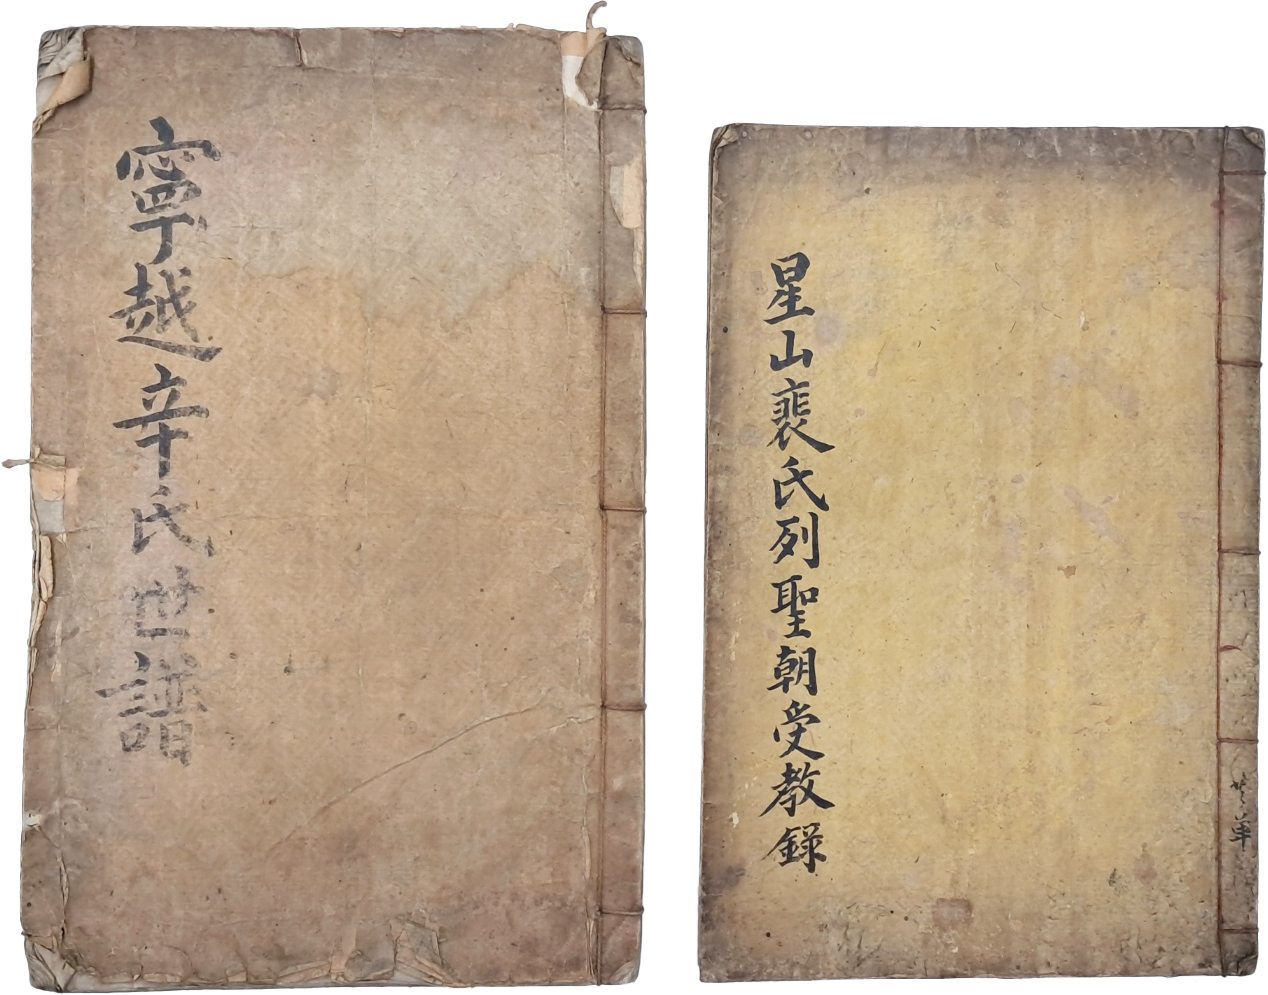 寧越辛氏世譜
星山裴氏列聖朝受教錄
共單